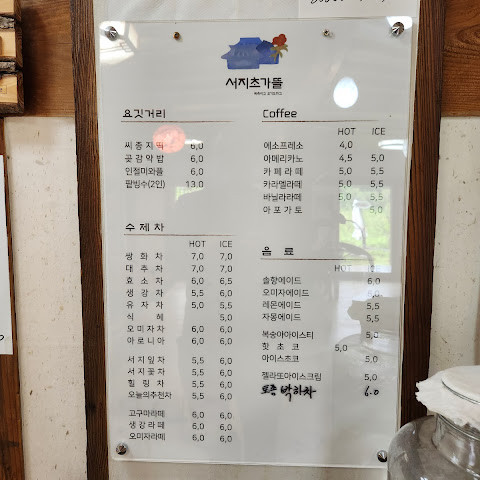 서지초가뜰
요깃거리
씨종지떡 6,0
곶감약밥 6,0
인절미와플 6,0
팥빙수(2인) 13,0
수제차
HOT ICE
쌍화차 7,0 7,0
대추차 7,0 7,0
효소차 6,0 6,5
생강차 5,5 6,0
유자차 5,0 5,5
식혜 5,0
오미자차 6,0 6,0
아로니아 6,0 6,0
서지잎차 5,5 6,0
서지꽃차 5,5 6,0
힐링차 5,5 6,0
오늘의추천차 5,5 6,0
고구마라떼 6,0 6,0
생강라떼 6,0 6,0
오미자라떼 6,0 6,0
Coffee
HOT ICE
에소프레소 4,0
아메리카노 4,5 5,0
카페라떼 5,0 5,5
카라멜라떼 5,0 5,5
바닐라라떼 5,0 5,5
아포가토 5,0
음료
HOT ICE
솔향에이드 6,0
오미자에이드 6,0
레몬에이드 5,5
자몽에이드 5,5
복숭아아이스티 5,0
핫초코 5,0
아이스초코 5,0
젤라또아이스크림 5,0
토종 박하차 6.0